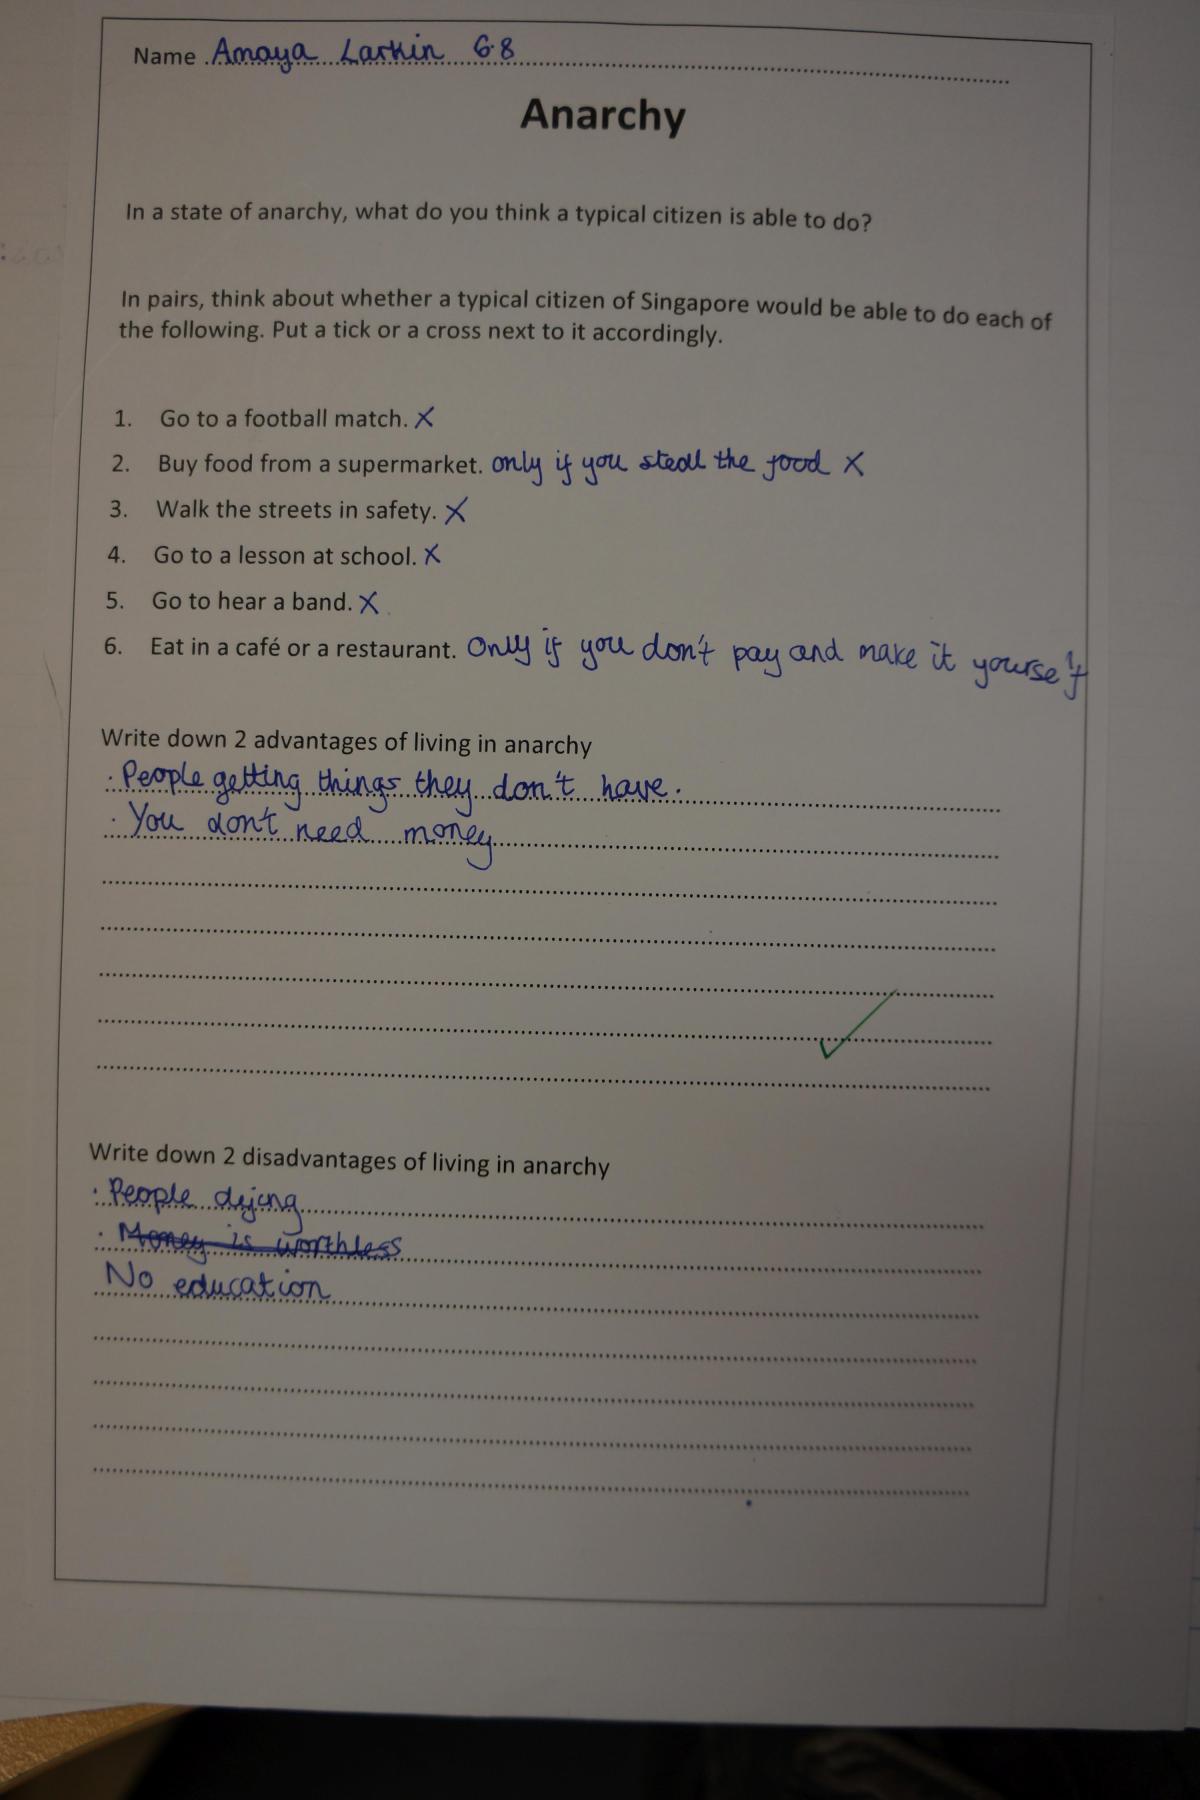 Name Amaya Larkin 6.8
Anarchy
In a state of anarchy, what do you think a typical citizen is able to do?
In pairs, think about whether a typical citizen of Singapore would be able to do each of
the following. Put a tick or a cross next to it accordingly.
1. Go to a football match. X
2. Buy food from a supermarket. only if you steall the food X
3. Walk the streets in safety. X
4. Go to a lesson at school. X
5. Go to hear a band. X
6. Eat in a café or a restaurant. Only if you don't pay and make it yourself
Write down 2 advantages of living in anarchy
· People getting things they don't have.
· You don't need money
Write down 2 disadvantages of living in anarchy
· People dijing
· Money is worthless
No education